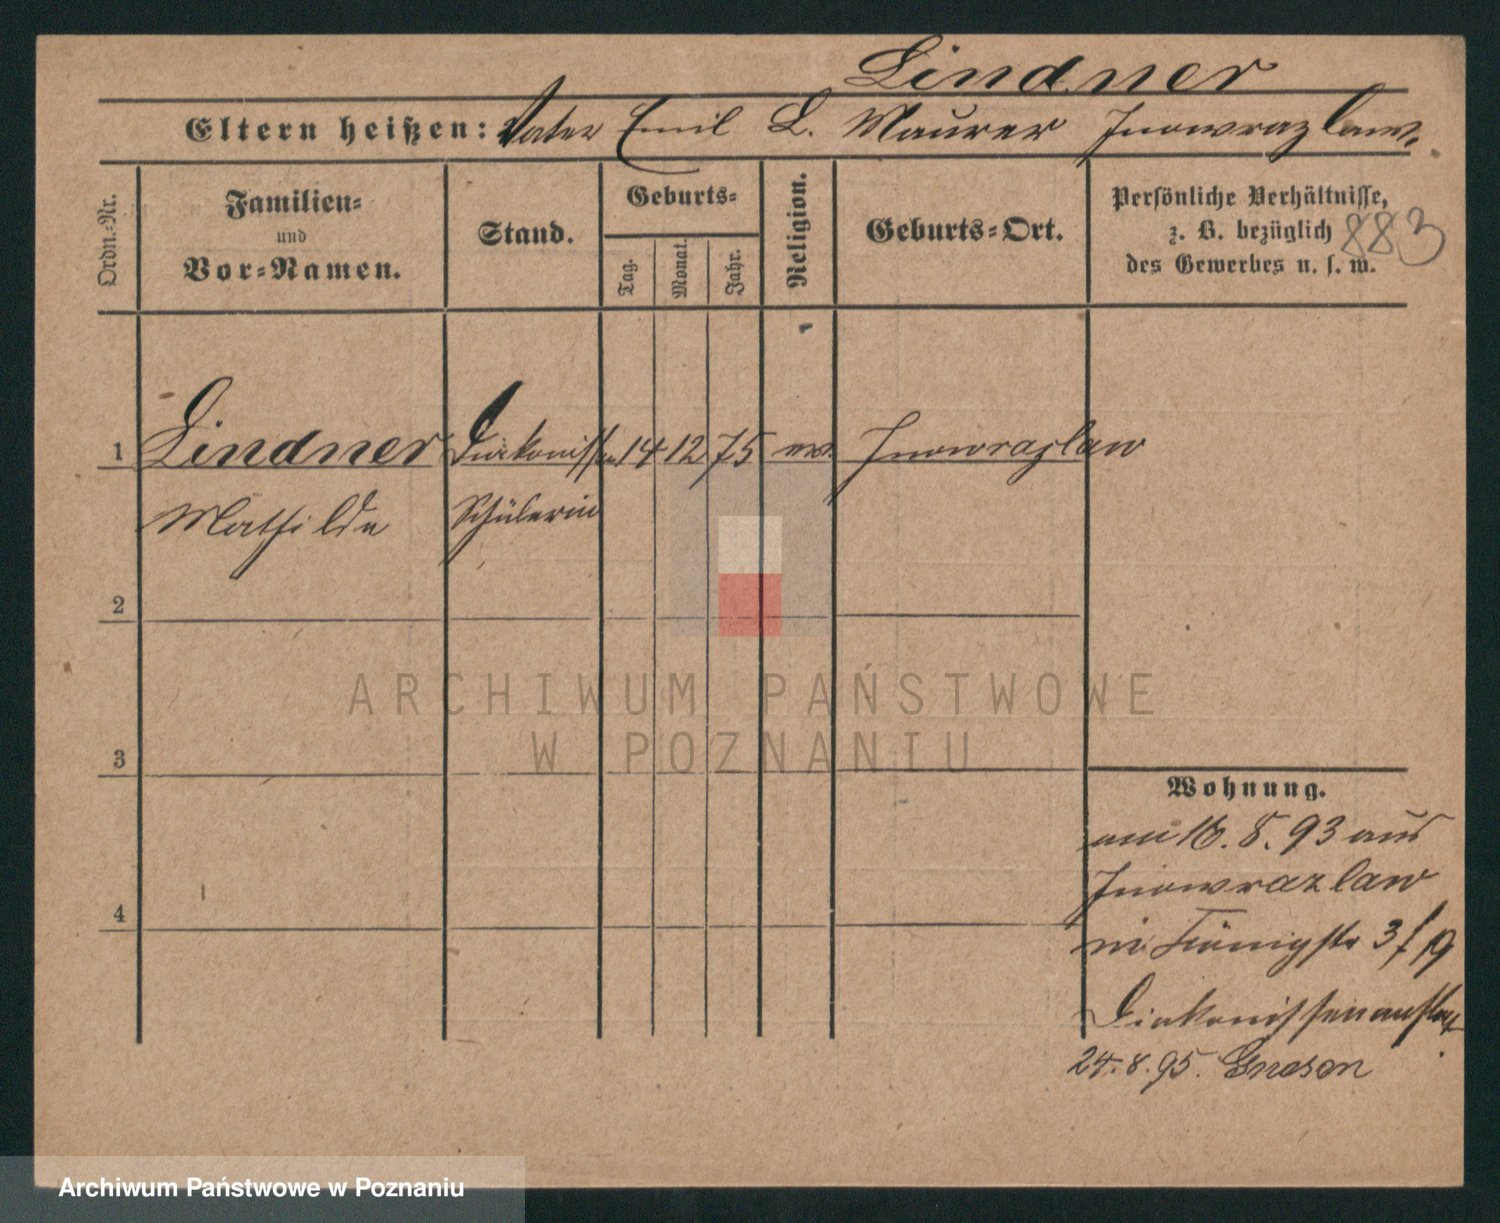 Lindner
Eltern heißen: Vater Emil L. Maurer Inowrazlaw.
Ordn.-Nr.
Familien- und Vor-Namen.
Stand.
Geburts-
Tag.
Monat.
Jahr.
Religion.
Geburts-Ort.
Persönliche Verhältnisse,
z. B. bezüglich
des Gewerbes u. s. w.
883
1 Lindner Diakonissen 14 12 75 ev. Inowrazlaw
Mathilde Schülerin
2
3
4
Wohnung.
am 16. 8. 93 aus
Inowrazlaw
n. Königstr 3/19
Diakonissenanstalt
24. 8. 95. Gnesen
ARCHIWUM PAŃSTWOWE
W POZNANIU
Archiwum Państwowe w Poznaniu